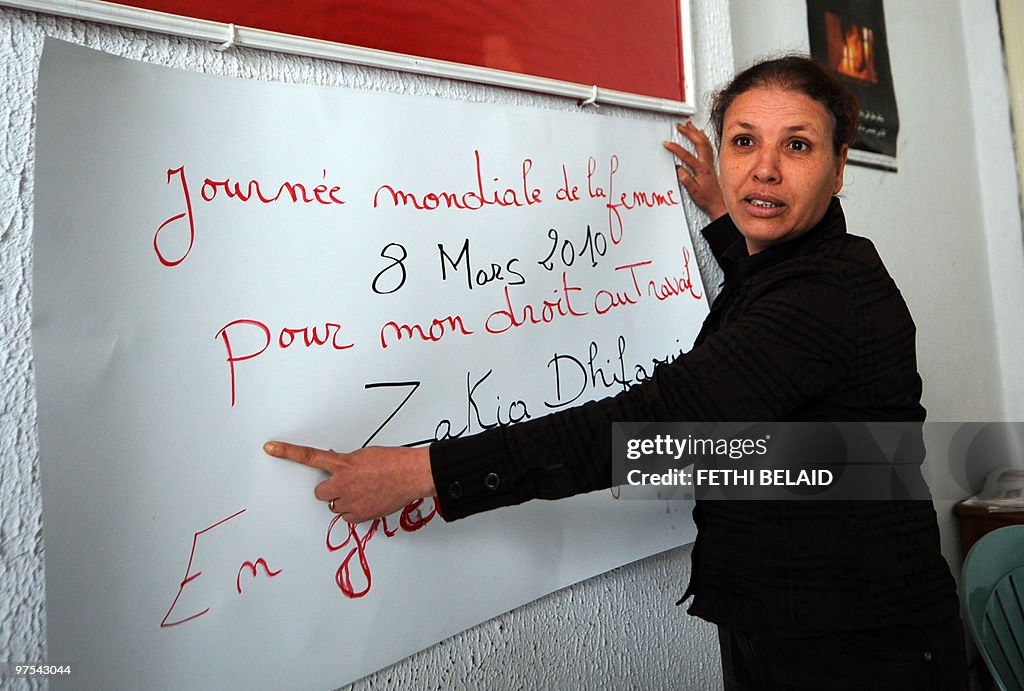 Journée mondiale de la femme
8 Mars 2010
Pour mon droit au Travail
Zakia Dhifaoui
En
gettyimages
FETHI BELAID
97543044